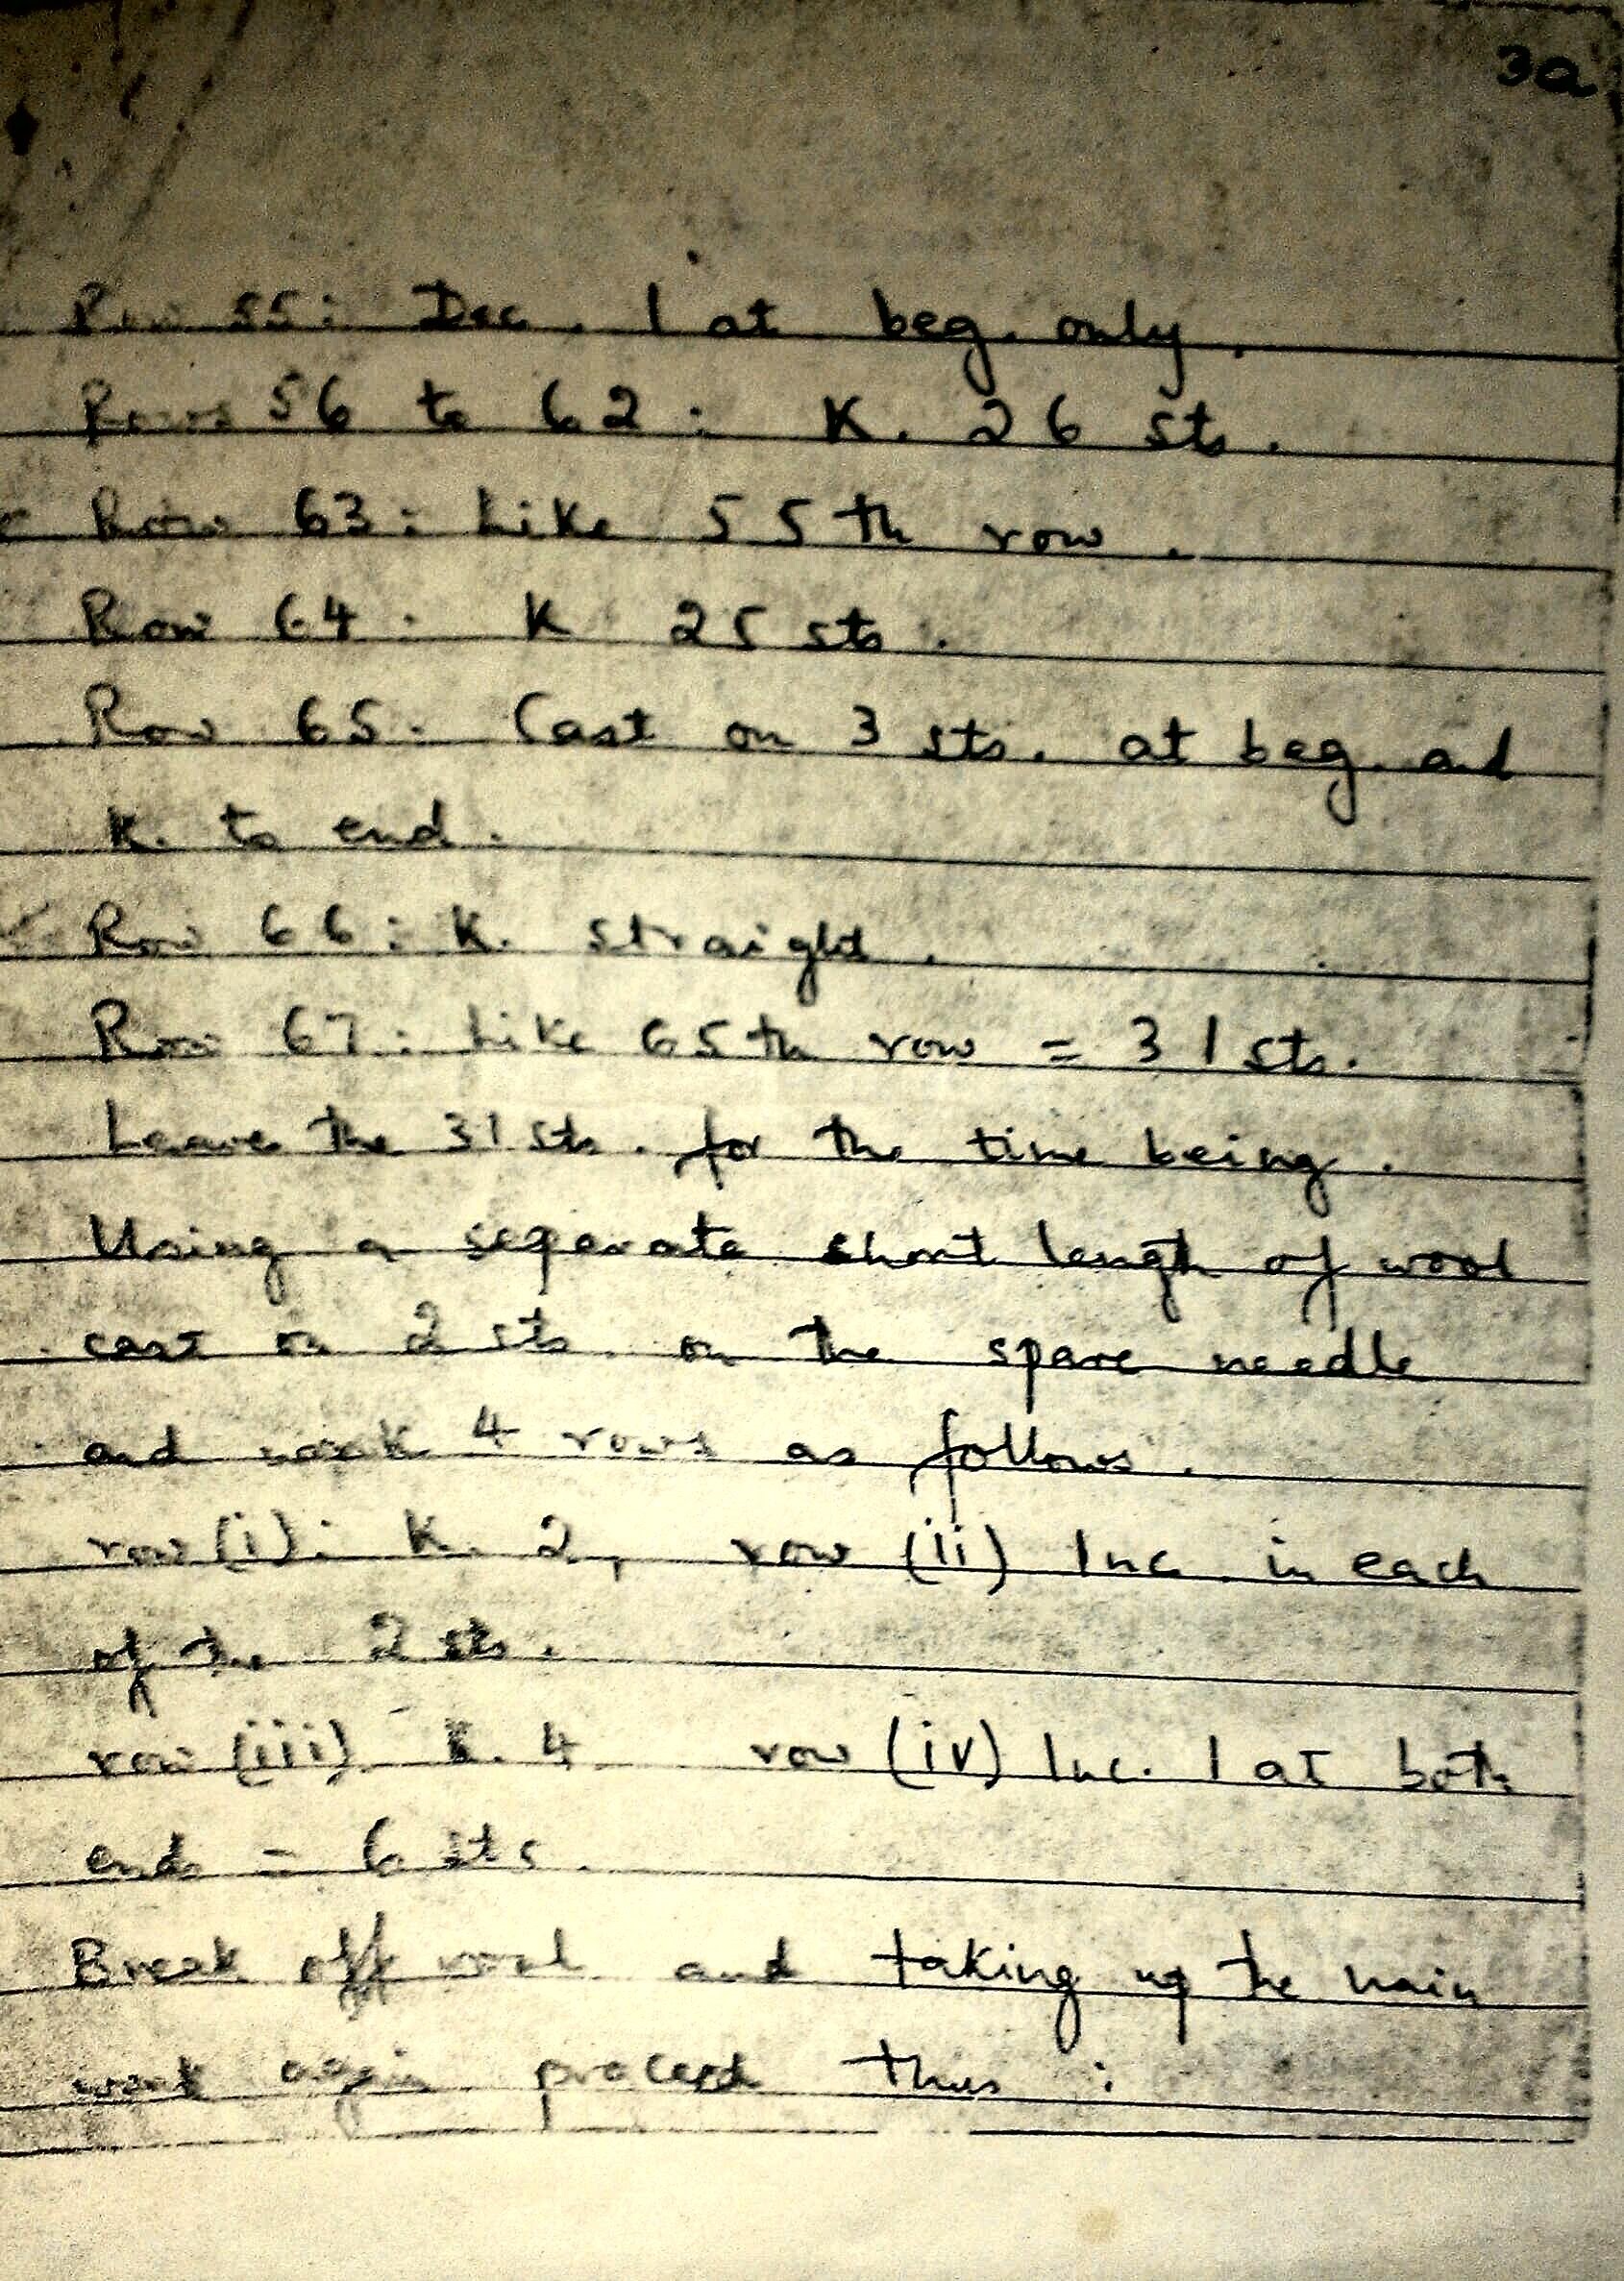 3a
Row 55: Dec. 1 at beg. only.
Rows 56 to 62: K. 26 sts.
Row 63: Like 55th row.
Row 64: K 25 sts.
Row 65. Cast on 3 sts. at beg. and
K. to end.
Row 66: K. straight.
Row 67: Like 65th row = 31 sts.
Leave the 31 sts. for the time being.
Using a separate short length of wool
cast on 2 sts. on the spare needle
and work 4 rows as follows.
row (i): K. 2, row (ii) Inc. in each
of the 2 sts.
row (iii) K. 4 row (iv) Inc. 1 at both
ends = 6 sts.
Break off wool and taking up the main
work again proceed thus :